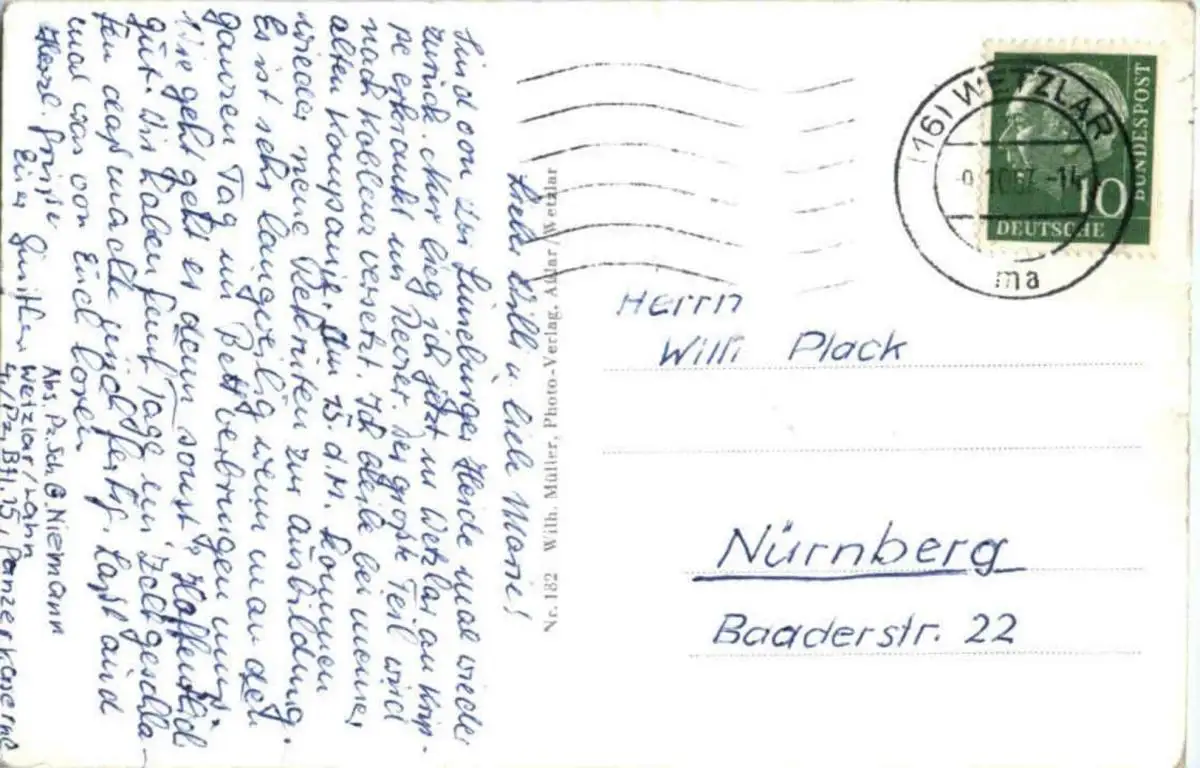 Lieber Willi u. liebe Marie!
Sind von der Lüneburger Heide mal wieder
zurück. Nur lieg ich jetzt in Wetzlar an Grip-
pe erkrankt im Revier. Der große Teil wird
nach Koblenz versetzt. Ich bleib bei meiner
alten Kompanie. Am 15. d.M. kommen
wieder neue Rekruten zur Ausbildung.
Es ist sehr langweilig wenn man den
ganzen Tag im Bett verbringen muß
Wie geht geht es denn sonst, Hoffentlich
gut. Wir haben fünf Tage im Zelt geschla-
fen das machte mich fertig. Laßt auch
mal was von Euch hören
Herzl. Grüße
Euer Günther
Abs. Pz.Sch. G. Niemann
Wetzlar/Lahn
4./Pz. Btl. 15, Panzerkaserne
Nr. 182 Wilh. Müller, Photo-Verlag, Aßlar/Wetzlar
(16) WETZLAR
-14
ma
BUNDESPOST
10
DEUTSCHE
Herrn
Willi Plack
Nürnberg
Baaderstr. 22